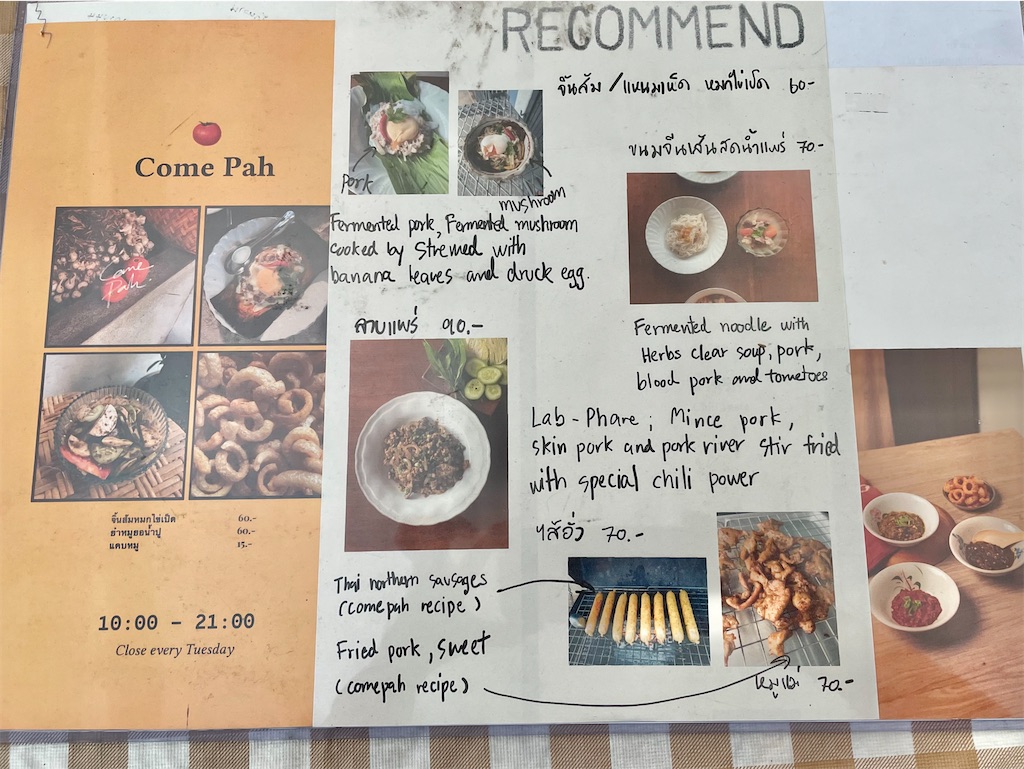 RECOMMEND
Come Pah
Come
Pah
จิ๊นส้มหมกไข่เป็ด 60.-
ยำหมูฮอน้ำปู 60.-
แคบหมู 15.-
10:00 – 21:00
Close every Tuesday
จิ๊นส้ม / แหนมเห็ด หมกไข่เป็ด 60-
Pork
mushroom
Fermented pork, Fermented mushroom
cooked by stremed with
banana leaves and druck egg.
ขนมจีนเส้นสดน้ำแพร่ 70.-
Fermented noodle with
Herbs clear soup, pork,
blood pork and tometoes
ลาบแพร่ 90.-
Lab - Phare ; Mince pork,
skin pork and pork river stir fried
with special chili power
ไส้อั่ว 70.-
Thai northern sausages
(comepah recipe)
Fried pork, sweet
(comepah recipe)
70.-